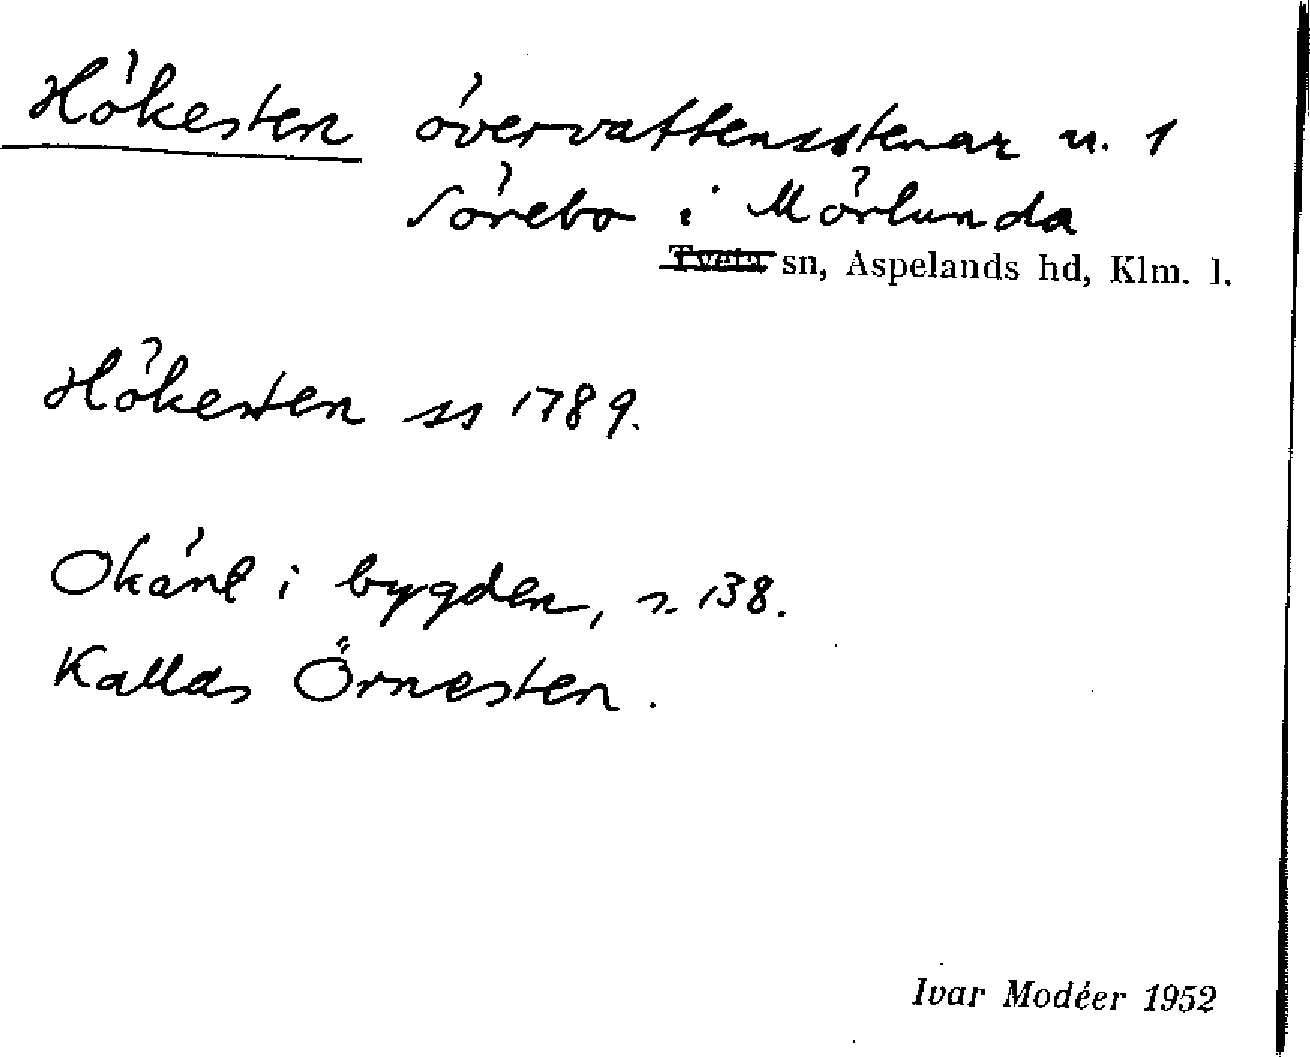 Hökesten övervattensstenar u. 1
Sörebo i Mörlunda
sn, Aspelands hd, Klm. l.
Hökesten ss 1789.
Okänt i bygden, s. 138.
Kallas Örnesten.
Ivar Modéer 1952